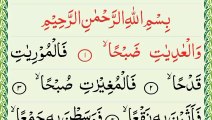 بِسْمِ اللّٰهِ الرَّحْمٰنِ الرَّحِيْمِ
وَالْعٰدِيٰتِ ضَبْحًا ۙ ۱ فَالْمُوْرِيٰتِ
قَدْحًا ۙ ۲ فَالْمُغِيْرٰتِ صُبْحًا ۙ ۳
فَاَثَرْنَ بِهٖ نَقْعًا ۙ ۴ فَوَسَطْنَ بِهٖ جَمْعًا ۙ